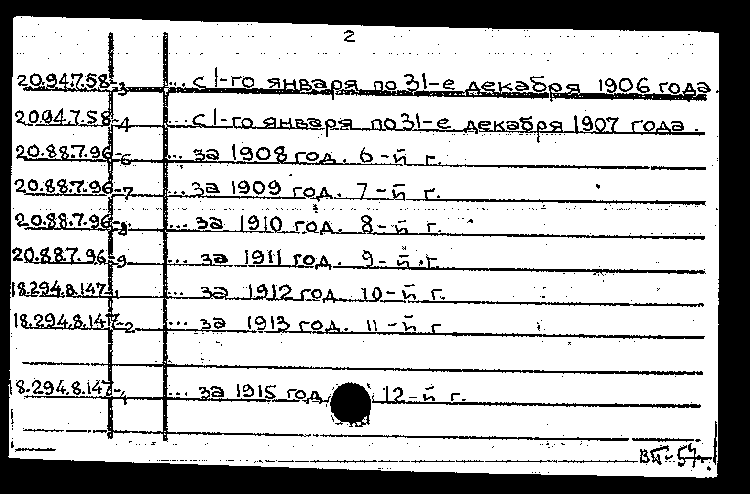 2
20.94.7.58-3 ... с 1-го января по 31-е декабря 1906 года.
20.94.7.58-4 ... с 1-го января по 31-е декабря 1907 года.
20.88.7.96-6 ... за 1908 год. 6-й г.
20.88.7.96-7 ... за 1909 год. 7-й г.
20.88.7.96-8 ... за 1910 год. 8-й г.
20.88.7.96-9 ... за 1911 год. 9-й г.
18.294.8.147-1 ... за 1912 год. 10-й г.
18.294.8.147-2 ... за 1913 год. 11-й г
18.294.8.147-4 ... за 1915 год 12-й г.